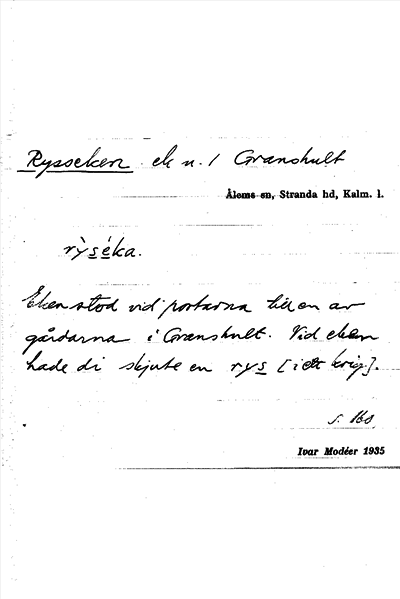 Rysseken ek n. 1 Granshult
Ålems sn, Stranda hd, Kalm. l.
rỳsèka.
Eken stod vid portarna till en av
gårdarna i Granshult. Vid eken
hade di skjute en rys [i ett krig].
s. 160
Ivar Modéer 1935